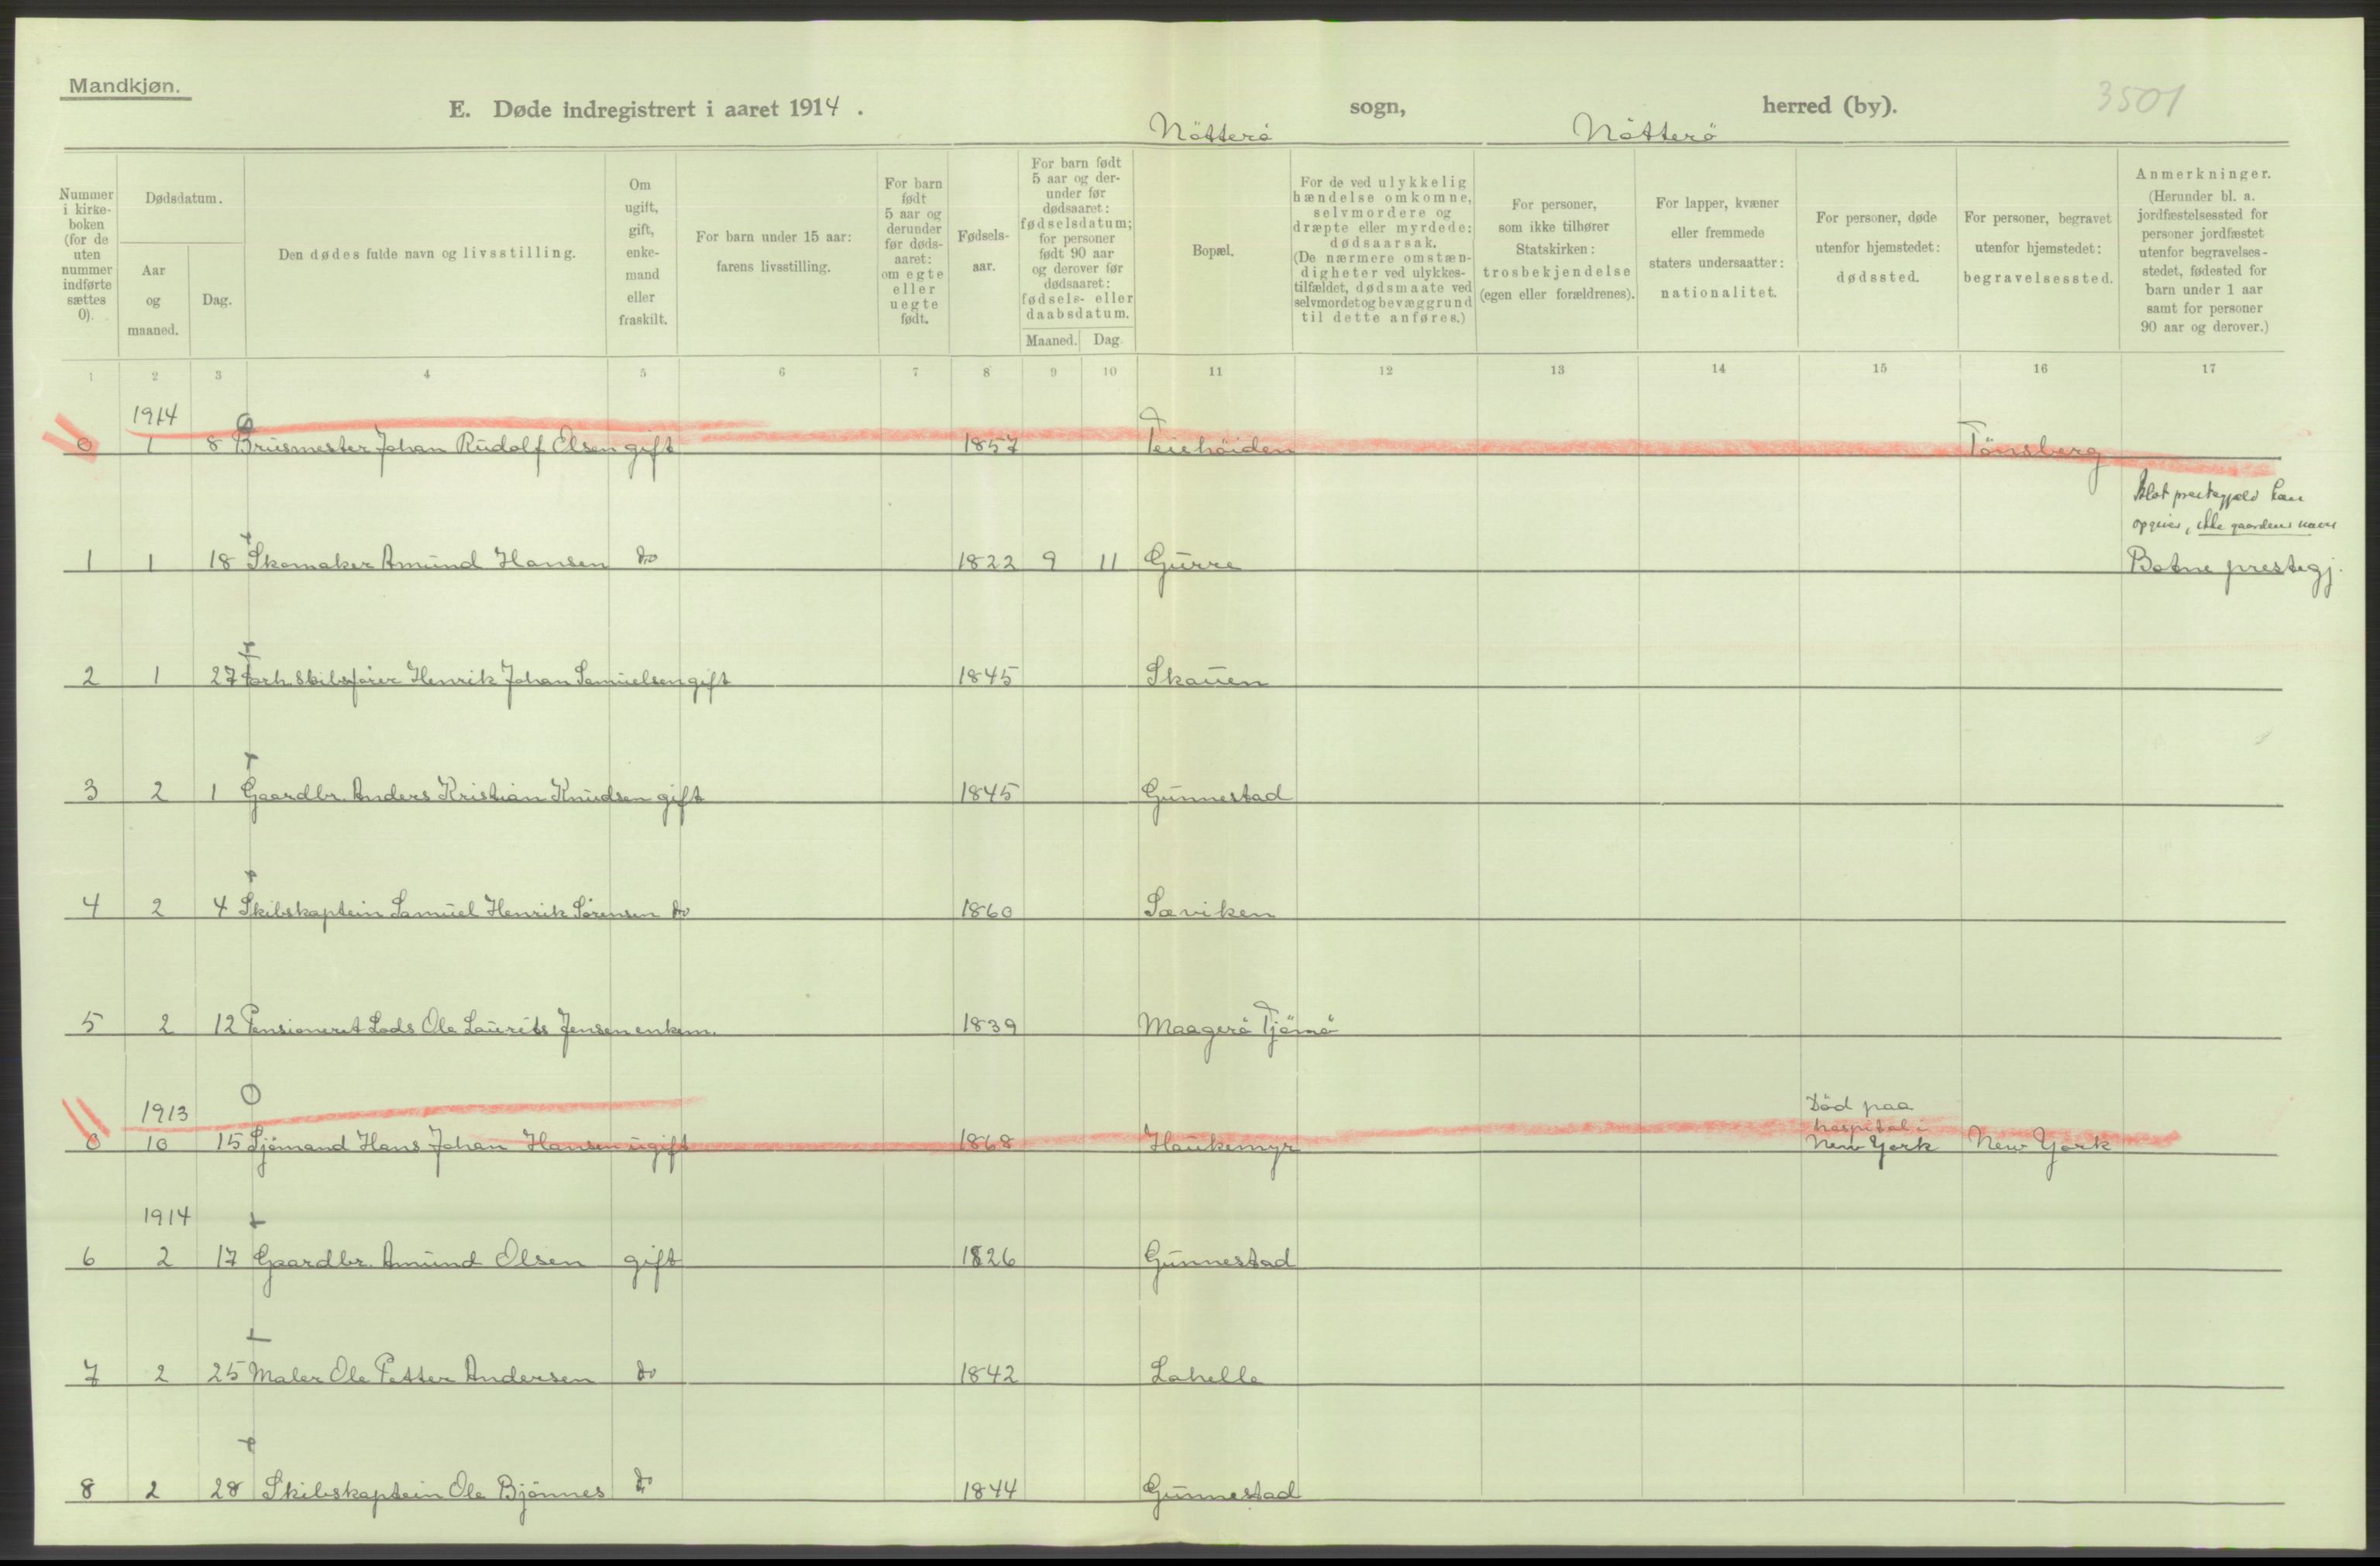 Mandkjøn.
E. Døde indregistrert i aaret 1914. Nötterö sogn, Nötterö herred (by). 3501
Nummer i kirke-
boken
(for de
uten
nummer
indførte
sættes
0).
Dødsdatum.
Aar
og
maaned.
Dag.
Den dødes fulde navn og livsstilling.
Om
ugift,
gift,
enke-
mand
eller
fraskilt.
For barn under 15 aar:
farens livsstilling.
For barn
født
5 aar og
derunder
før døds-
aaret:
om egte
eller
uegte
født.
Fødsels-
aar.
For barn født
5 aar og der-
under før
dødsaaret:
fødselsdatum;
for personer
født 90 aar
og derover før
dødsaaret:
fødsels- eller
daabsdatum.
Maaned. Dag.
Bopæl.
For de ved ulykkelig
hændelse omkomne,
selvmordere og
dræpte eller myrdede:
dødsaarsak.
(De nærmere omstæn-
digheter ved ulykkes-
tilfældet, dødsmaate ved
selvmordet og bevæggrund
til dette anføres.)
For personer,
som ikke tilhører
Statskirken:
trosbekjendelse
(egen eller forældrenes).
For lapper, kvæner
eller fremmede
staters undersaatter:
nationalitet.
For personer, døde
utenfor hjemstedet:
dødssted.
For personer, begravet
utenfor hjemstedet:
begravelsessted.
Anmerkninger.
(Herunder bl. a.
jordfæstelsessted for
personer jordfæstet
utenfor begravelses-
stedet, fødested for
barn under 1 aar
samt for personer
90 aar og derover.)
1 2 3 4 5 6 7 8 9 10 11 12 13 14 15 16 17
1914
0 1 8 Brusmester Johan Rudolf Olsen gift 1857 Teiehöiden Tönsberg
Blot prestegjeld kan
opgives, ikke gaardens navn
1 1 18 Skomaker Amund Hansen do 1822 9 11 Gurre Botne prestegj.
2 1 27 Forh. Skibsfører Henrik Johan Samuelsen gift 1845 Skauen
3 2 1 Gaardbr. Anders Kristian Knudsen gift 1845 Gunnestad
4 2 4 Skibskaptein Samuel Henrik Sörensen do 1860 Sæviken
5 2 12 Pensioneret Lods Ole Laurits Jensen enkem. 1839 Maagerö Tjömö
1913 Död paa
hospital i
0 10 15 Sjömand Hans Johan Hansen ugift 1868 Haukemyr New York New York
1914
6 2 17 Gaardbr. Amund Olsen gift 1826 Gunnestad
7 2 25 Maler Ole Petter Andersen do 1842 Lahelle
8 2 28 Skibskaptein Ole Bjönnes do 1844 Gunnestad